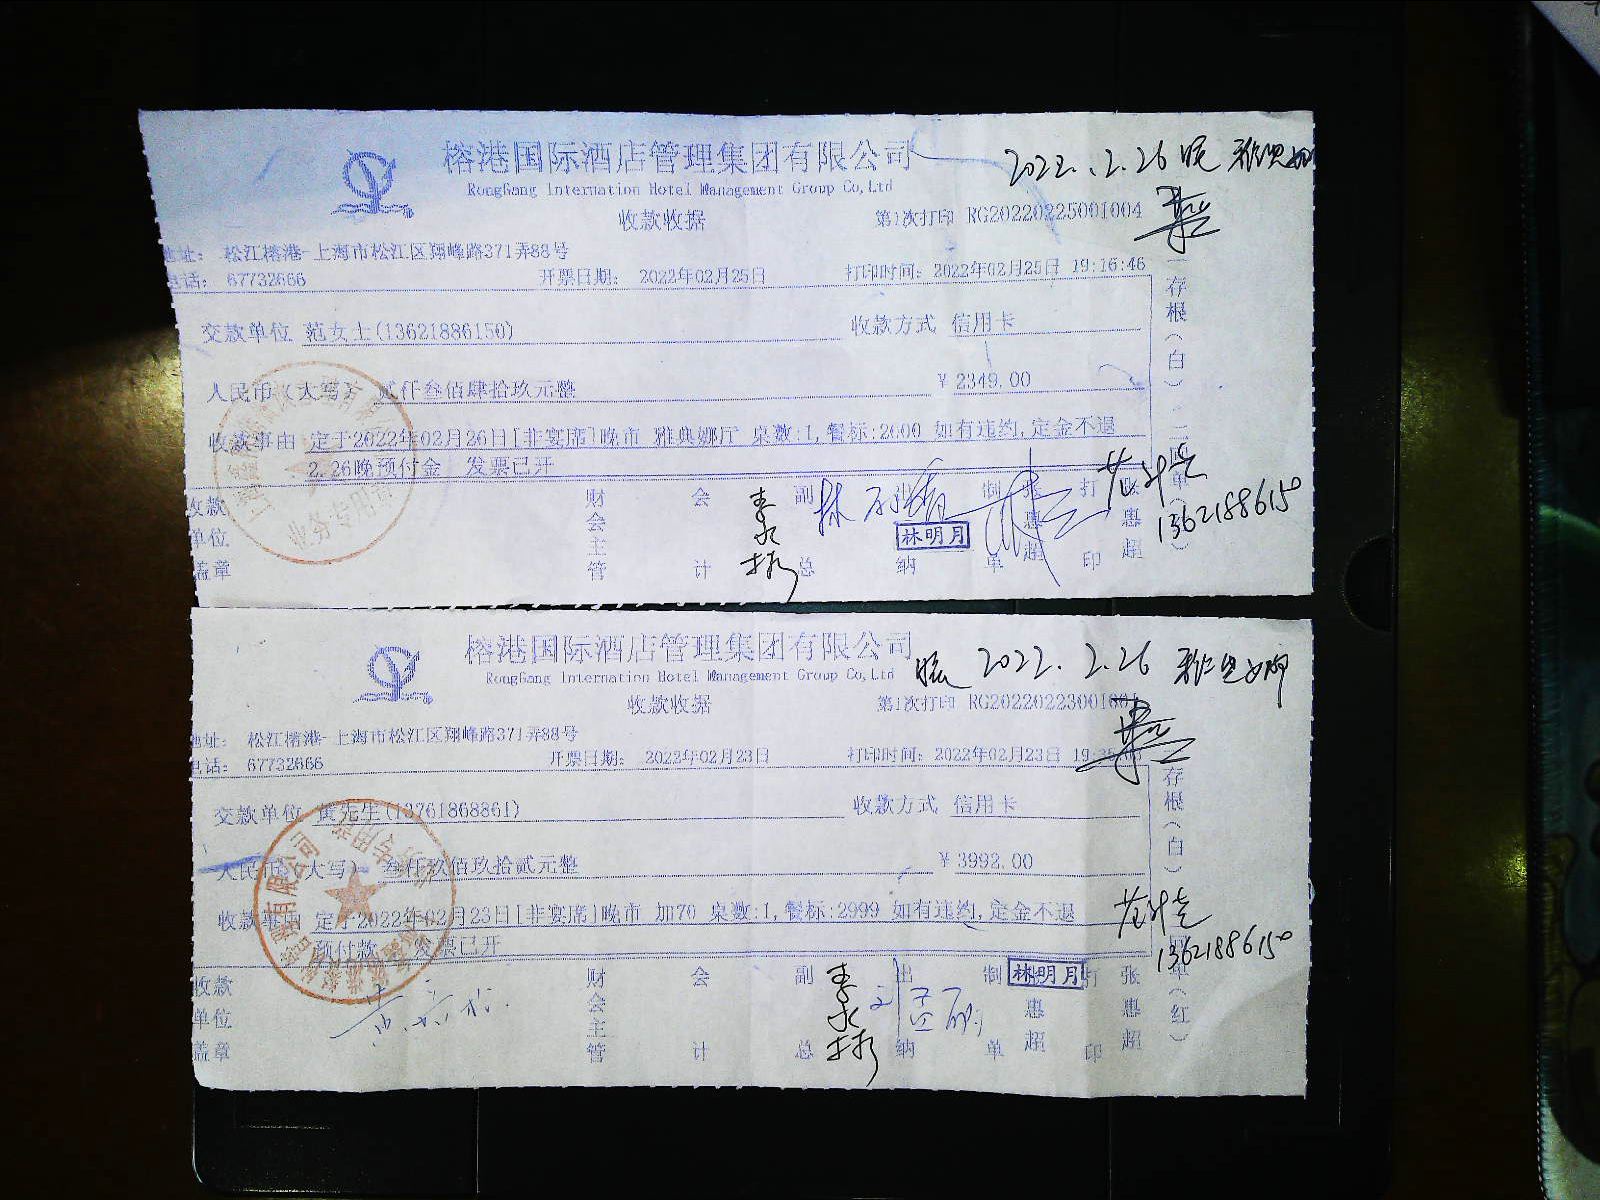 榕港国际酒店管理集团有限公司
RongGang Internation Hotel Management Group Co,Ltd
2022.2.26 晚
收款收据
第1次打印 RG20220225001004
地址： 松江榕港-上海市松江区翔峰路371弄88号
电话： 67732666
开票日期： 2022年02月25日
打印时间：2022年02月25日 19:16:46
交款单位 范女士(13621886150)
收款方式 信用卡
人民币（大写） 贰仟叁佰肆拾玖元整
￥2349.00
收款事由 定于2022年02月26日[非宴席]晚市 雅典娜厅 桌数:1,餐标:2600 如有违约,定金不退
2.26晚预付金 发票已开
一存根(白)
收款单位盖章
业务专用章
财会主管
会计
副总
李永彬
出纳
林明月
制单
张惠超
打印
张惠超
13621886150
榕港国际酒店管理集团有限公司
RongGang Internation Hotel Management Group Co,Ltd
晚 2022.2.26
收款收据
第1次打印 RG20220223001
地址： 松江榕港-上海市松江区翔峰路371弄88号
电话： 67732666
开票日期： 2022年02月23日
打印时间：2022年02月23日
交款单位 黄先生(13761868861)
收款方式 信用卡
人民币（大写） 叁仟玖佰玖拾贰元整
￥3992.00
收款事由 定于2022年02月23日[非宴席]晚市 加70 桌数:1,餐标:2999 如有违约,定金不退
预付款 发票已开
存根(白)
(红)
13621886150
收款单位盖章
财会主管
会计
副总
李永彬
出纳
制单
林明月
惠超
打印
张惠超